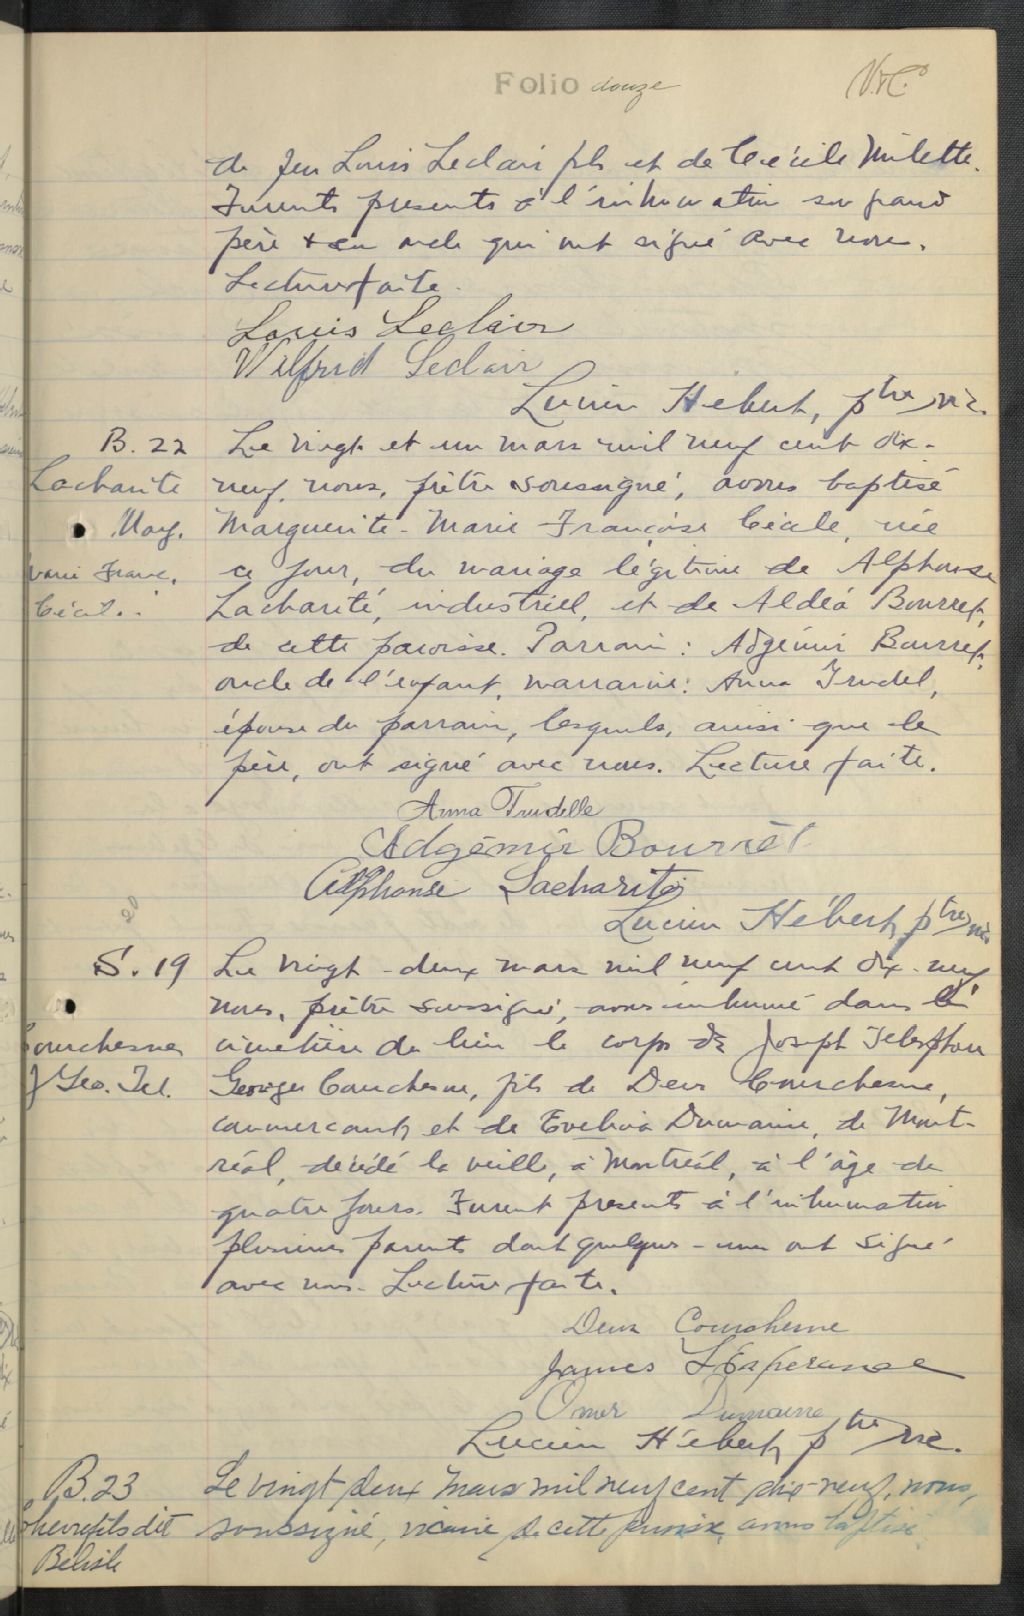 Folio douze
V.H.
de feu Louis Leclair fils et de Cécile Milette.
Furents presents à l'inhumation son grand
père + son oncle qui ont signé avec nous.
Lecture faite.
Louis Leclair
Wilfrid Leclair
Lucien Hébert, ptre vic.
B. 22
Lacharité
Marg.
Marie Franc.
Cécil.
Le vingt et un mars mil neuf cent dix-
neuf, nous, prêtre soussigné, avons baptisé
Marguerite-Marie-Françoise Cécile, née
ce jour, du mariage légitime de Alphonse
Lacharité, industriel, et de Aldéa Bourret,
de cette paroisse. Parrain: Adgémir Bourret,
oncle de l'enfant, marraine: Anna Trudel,
épouse du parrain, lesquels, ainsi que le
père, ont signé avec nous. Lecture faite.
Anna Trudelle
Adgémir Bourret
Alphonse Lacharité
Lucien Hébert, ptre vic.
20
S. 19
Courchesne
J Geo. Tel.
Le vingt-deux mars mil neuf cent dix-neuf
nous, prêtre soussigné, avons inhumé dans le
cimetière du lieu le corps de Joseph Telesphore
Georges Courchesne, fils de Deus Courchesne,
commercant, et de Evelina Dumaine, de Mont-
réal, décédé la veille, à Montréal, à l'âge de
quatre jours. Furent presents à l'inhumation
plusieurs parents dont quelques-uns ont signé
avec nous. Lecture faite.
Deus Courchesne
James L'Esperance
Omer Dumaine
Lucien Hébert, ptre vic.
B. 23
Chevrefils dit
Belisle
Le vingt deux Mars mil neuf cent dix-neuf, nous,
soussigné, vicaire de cette paroisse, avons baptisé